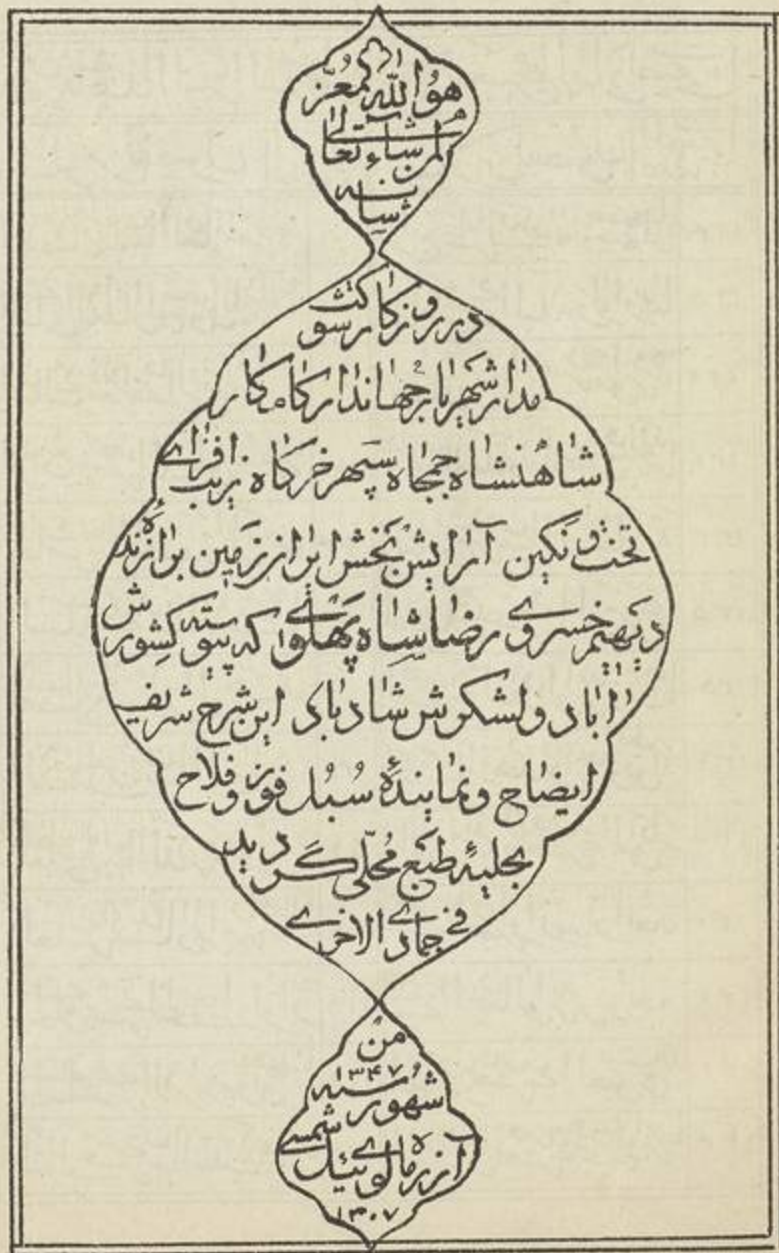 هُو اللّٰه المُعزّ
لمن شاء تعالى
شانه
در روزکار شوکت
مدار شهریار جهاندار کامکار
شاهنشاه جمجاه سپهر خرکاه زیب افزای
تخت و نکین آرایش بخش ایران زمین برازندهٔ
دیهیم خسروی رضا شاه پهلوی که پیوسته کشورش
آباد و لشکرش شاد باد این شرح شریف
ایضاح و نمایندهٔ سُبُل فوز و فلاح
بحلیهٔ طبع مُحلّی کردید
فی جمادی الاخری
من
۱۳۴۷
شهور سنه
آذر ماه لوی ئیل شمسی
۱۳۰۷